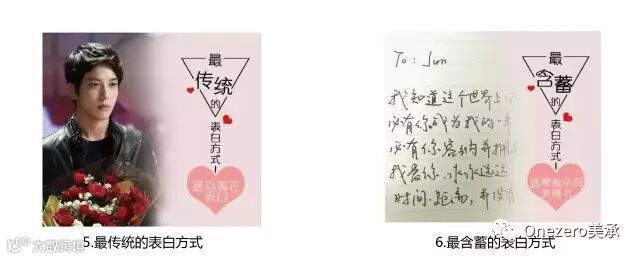 最
传统
的
表白方式
送玫瑰花
表白
5.最传统的表白方式
大数跨境
To: Jun
我知道这个世界上
必有你成为我的一
必有你容纳并拥
我爱你.永永远远
时间.距离,并没有
最
含蓄
的
表白方式
情书
6.最含蓄的表白方式
Onezero美承